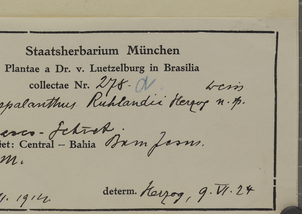 Staatsherbarium München
Plantae a Dr. v. Luetzelburg in Brasilia
collectae Nr. 278.
spalanthus Ruhlandii Herzog n. sp.
et: Central – Bahia Bom Jesus.
M.
1914
determ. Herzog, 9. VI. 24